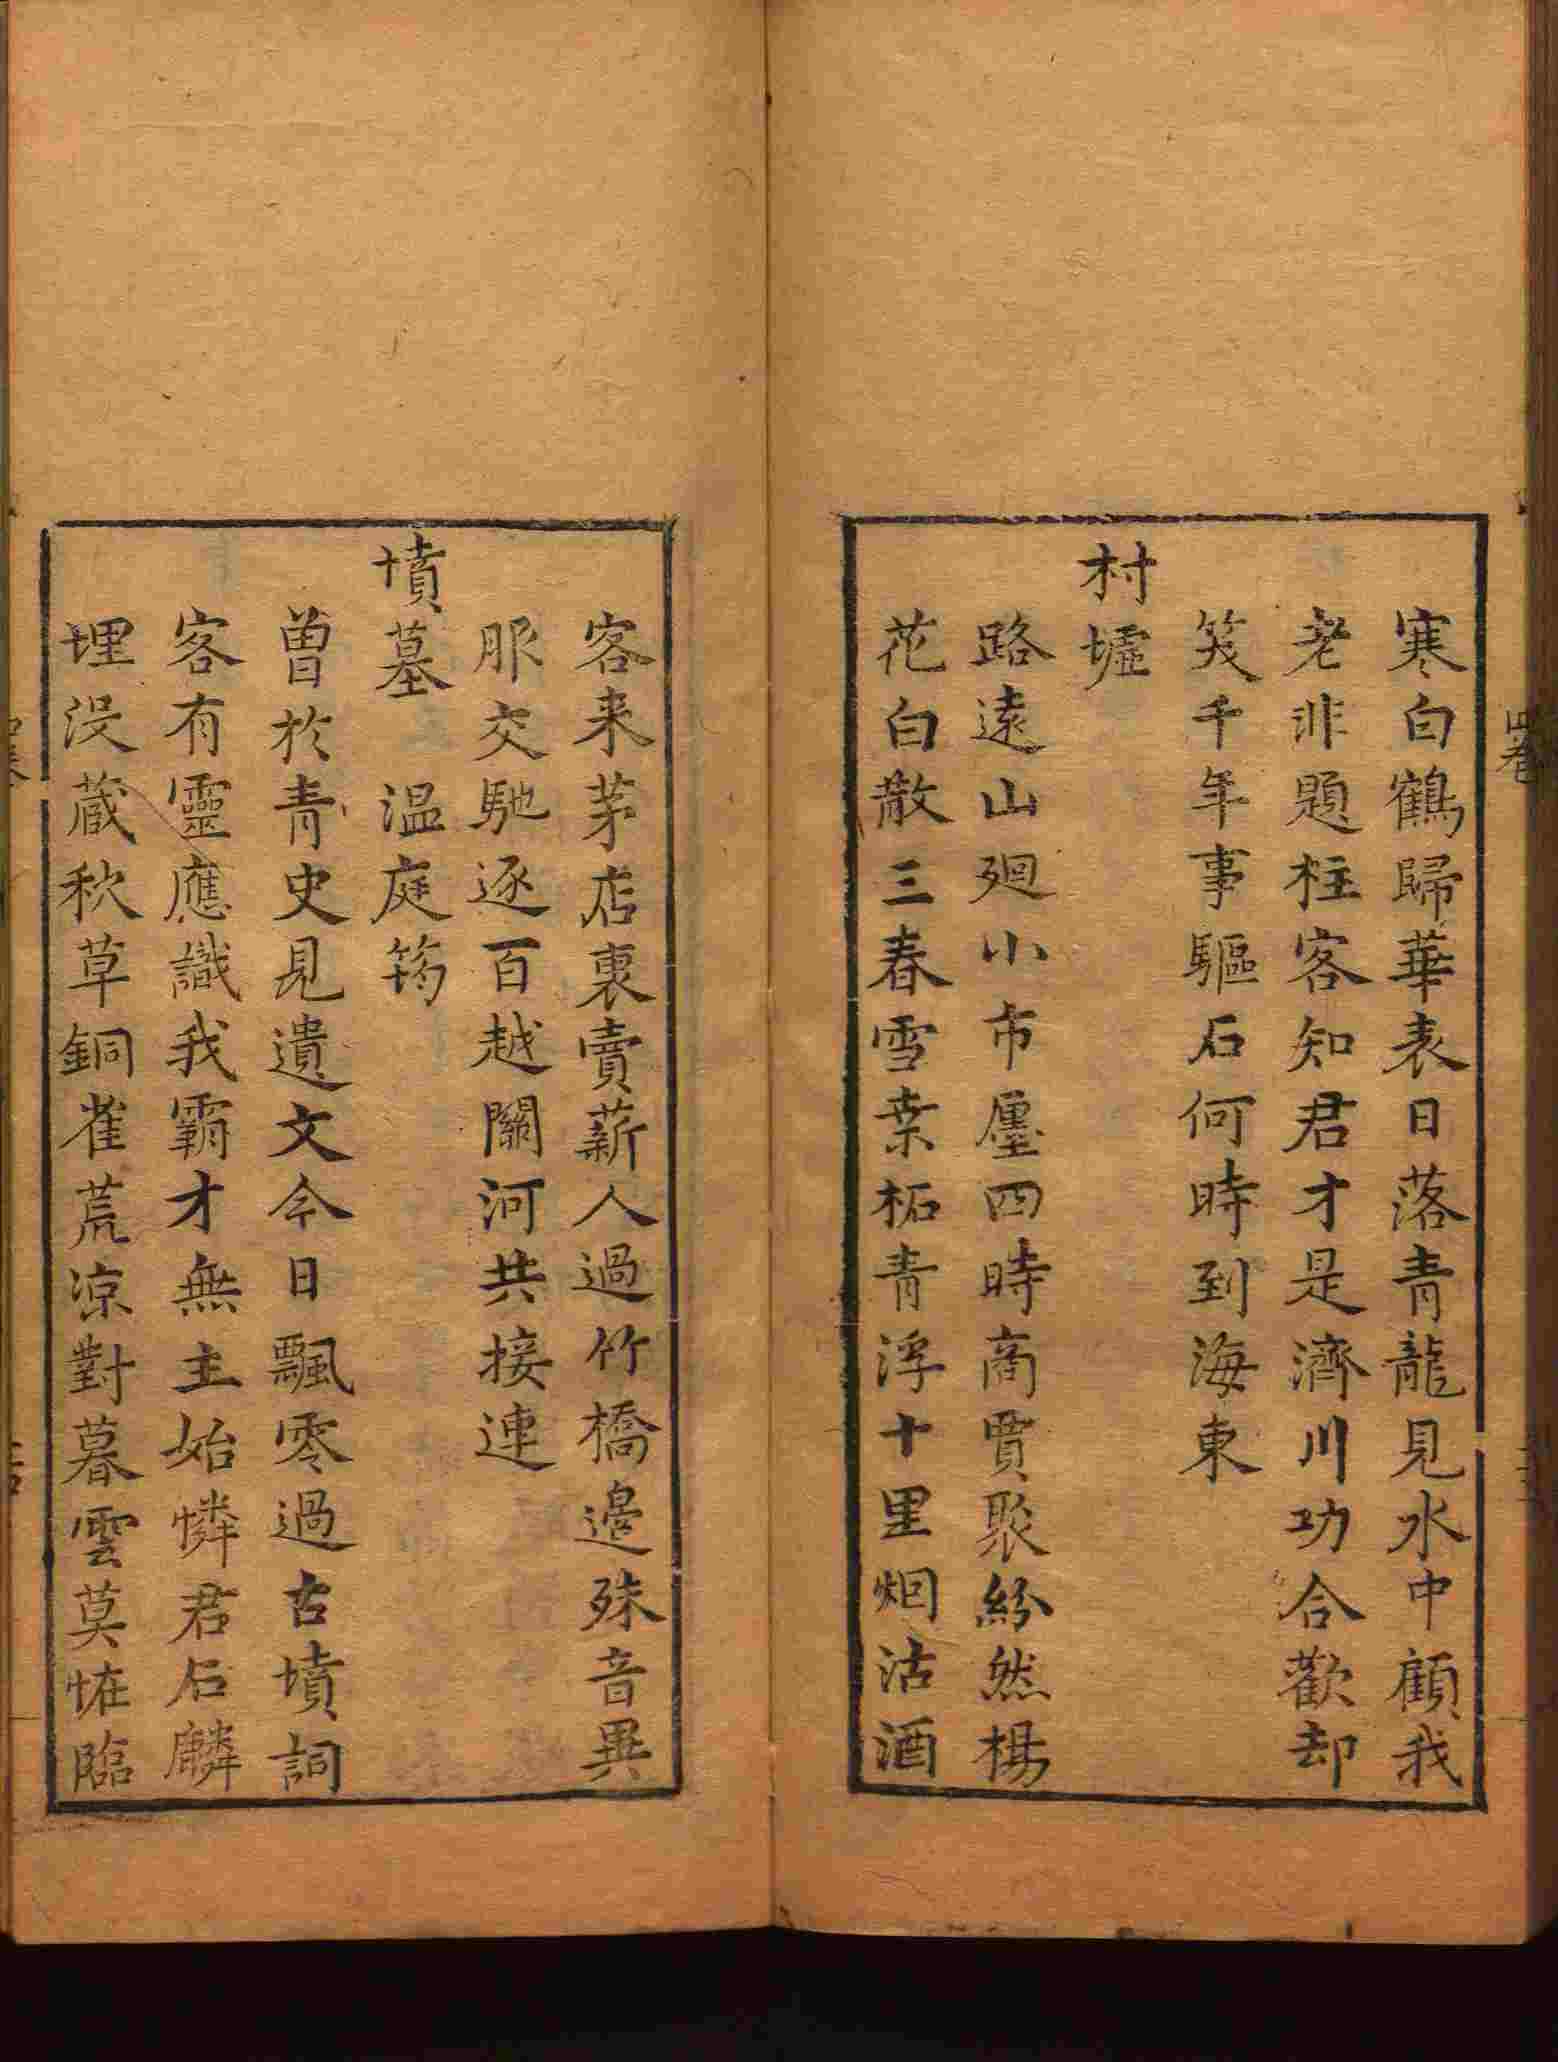 寒白鶴歸華表日落青龍見水中顧我
老非題柱客知君才是濟川功合歡却
笑千年事驅石何時到海東
村墟
路遠山迴小市廛四時商賈聚紛然楊
花白散三春雪桒柘青浮十里烟沽酒
客来茅店裏賣薪人過竹橋邊殊音異
服交馳逐百越關河共接連
墳墓　温庭筠
曽於青史見遺文今日飄零過古墳詞
客有靈應識我霸才無主始憐君石麟
埋没蔵秋草銅雀荒凉對暮雲莫恠臨